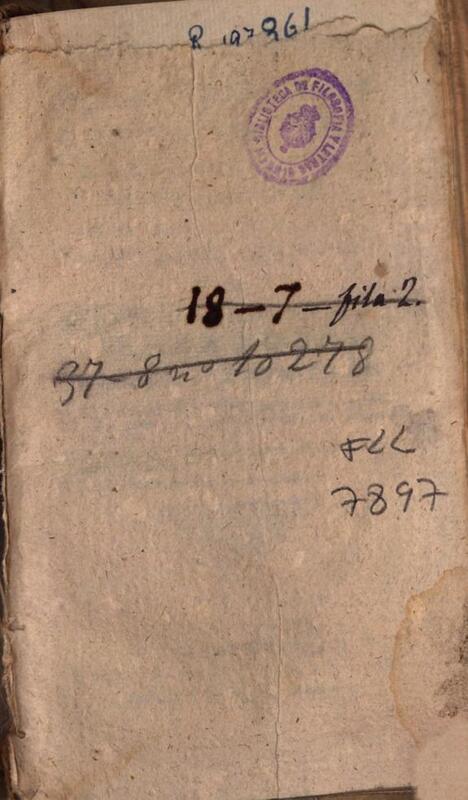 BIBLIOTECA DE FILOSOFIA Y LETRAS
18-7-fila 2.
37-8 nº 10278
FLL
7897